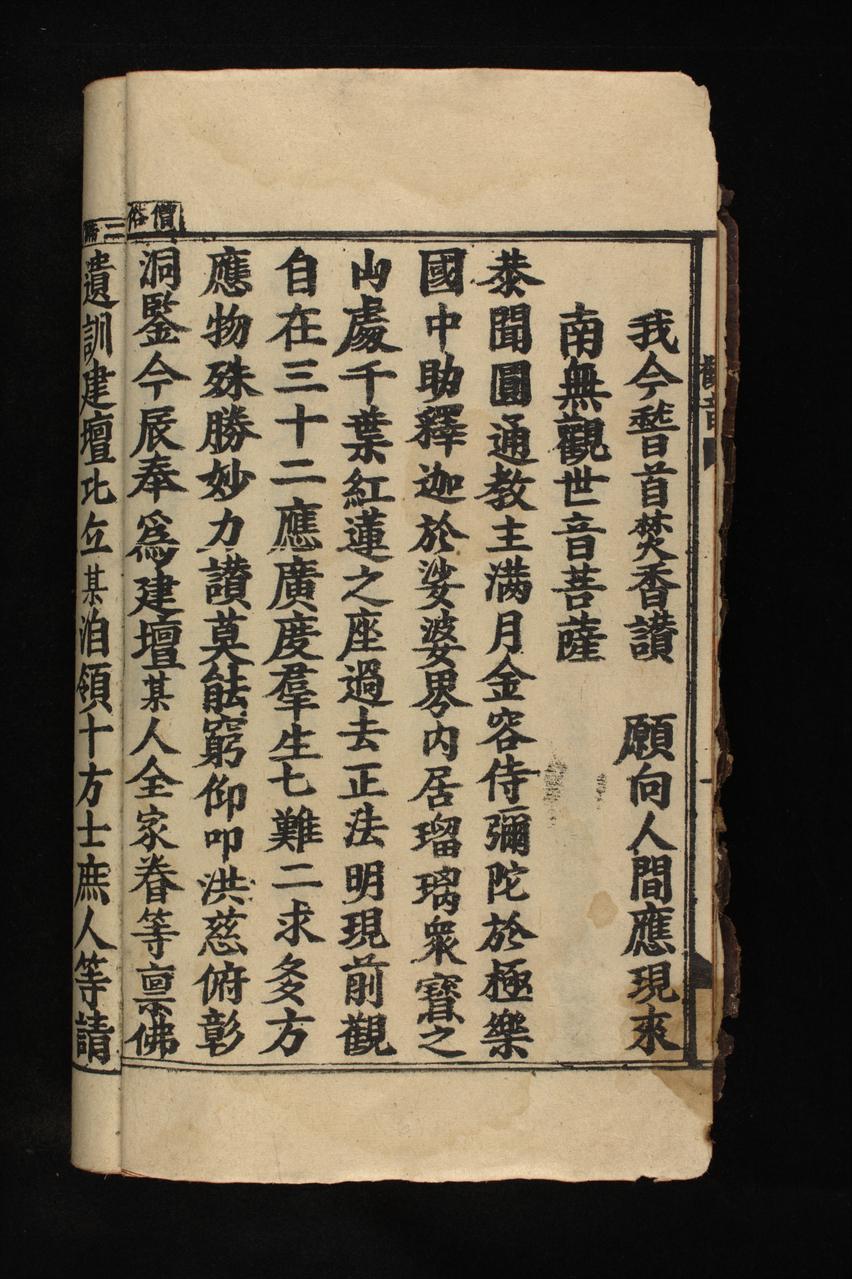 我今稽首焚香讃　願向人間應現來
南無觀世音菩薩
恭聞圓通教主滿月金容侍彌陀於極樂
國中助釋迦於娑婆界內居瑠璃衆寶之
山處千葉紅蓮之座過去正法明現前觀
自在三十二應廣度羣生七難二求多方
應物殊勝妙力讃莫能窮仰叩洪慈俯彰
洞鑒今辰奉爲建壇某人全家眷等禀佛
遺訓建壇比丘某洎領十方士庶人等請
僧俗
二